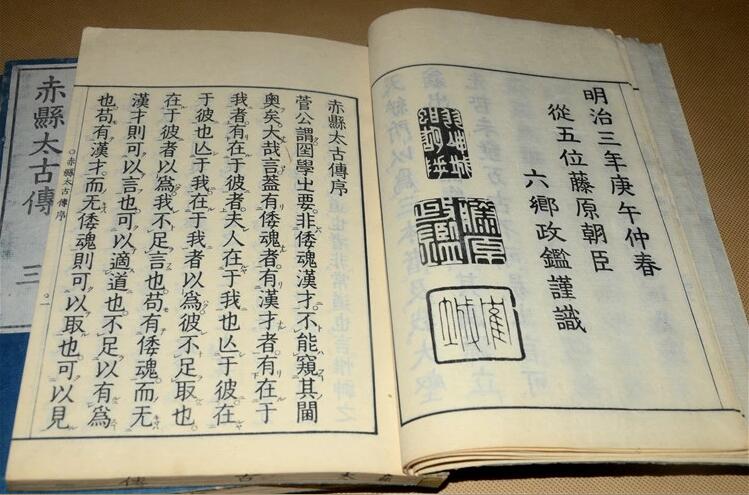 明治三年庚午仲春
從五位藤原朝臣
六鄉政鑑謹識
藤原
政鑑
赤縣太古傳序
菅公謂圀學㞢要非倭魂漢才不能窺其閫
奧矣大哉言葢有倭魂者有漢才者有在于
我者有在於彼者夫人在于我也亾于彼在
于彼也亾于我在于我者以爲彼不足取也
在于彼者以爲我不足言也苟有倭魂而无
漢才則可以言也可以適道也不足以有爲
也苟有漢才而无倭魂則可以取也可以見
○赤縣太古傳序 ○一
赤縣太古傳 三